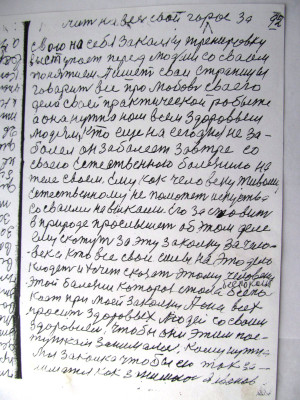 лит на век свой горос За
свою на себя Закалку тренировку
выступает перед людми со своим
понятием Пишет свои страницы
говорит все про Любовь своего
дело своей практической работы
а она нужна нам всем Здоровым
людям, Кто еще на сегодня не За-
болел он заболеет Завтра со
своего Естественного болению на
теле своем. Ему как человеку живому
Естественному не поможет искуства
со своими навыками. Его За
в природе просвышет об этом деле
Ему скажут За эту Закалку За чело-
века Кто все свои силы на Это дело
кладет и хочет сказать Этому человеку
Этой болезни которая стоба
Кает при моей Закалки А она всех
просит Здоровых Людей со своим
Здоровием, Чтобы они Этим
занимались, Кому нужна
Закалка чтобы ею так За-
имался как я